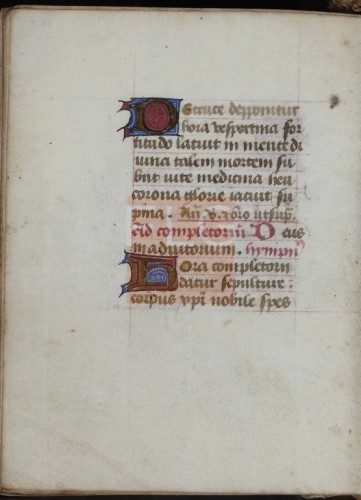 De cruce deponitur
hora vespertina for
titudo latuit in mente di
uina talem mortem su
biit vite medicina heu
corona glorie iacuit su
pina. An̄. v̄. orō ut sup̄.
Ad completoriū Deus
in adiutorium. hympn̄
Hora completorii
datur sepulture:
corpus xp̄i nobile spes